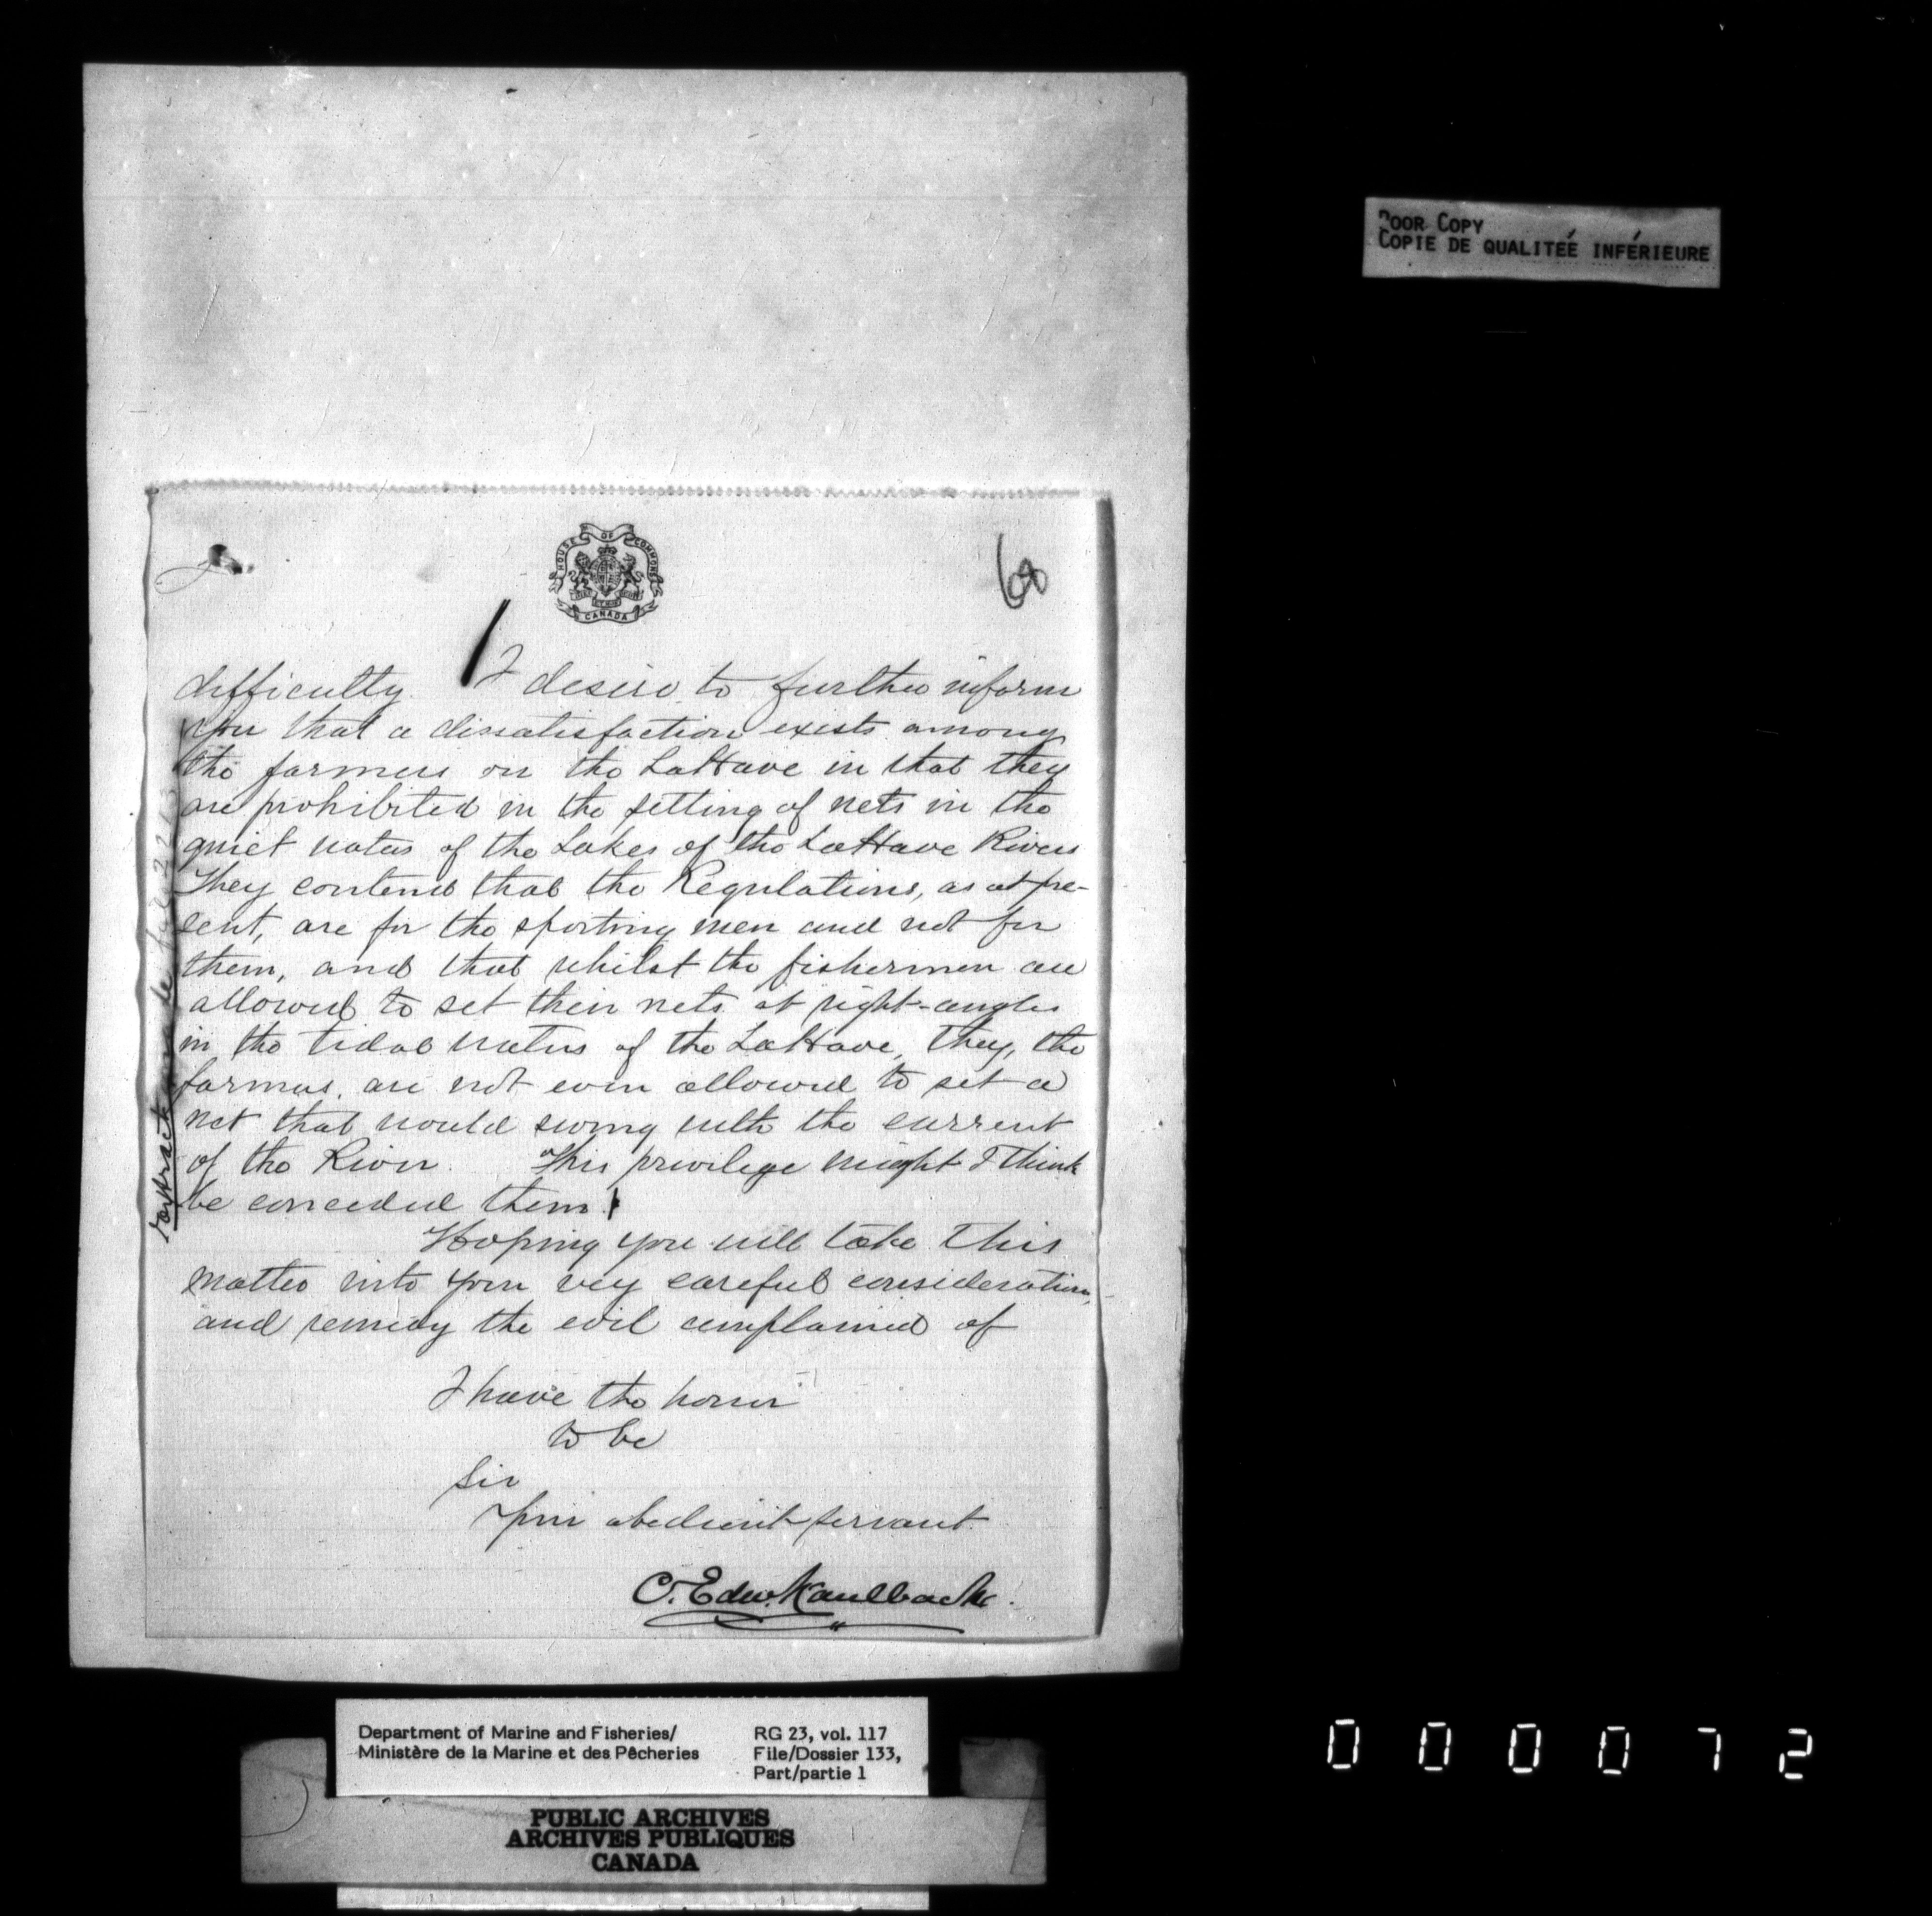 POOR COPY
COPIE DE QUALITEÉ INFÉRIEURE
HOUSE OF COMMONS
CANADA
60
difficulty. I desire to further inform
you that a dissatisfaction exists among
the farmers on the LaHave in that they
are prohibited in the setting of nets in the
quiet waters of the Lakes of the LaHave River
They contend that the Regulations, as at pre-
sent, are for the sporting men and not for
them, and that whilst the fishermen are
allowed to set their nets at right-angles
in the tidal waters of the LaHave, they, the
farmers, are not even allowed to set a
net that would swing with the current
of the River. This privilege might I think
be conceded them.
Hoping you will take this
matter into your very careful consideration,
and remedy the evil complained of
I have the honor
to be
Sir
Your obedient servant
C. Edw. Kaulbach.
Department of Marine and Fisheries/
Ministère de la Marine et des Pêcheries
RG 23, vol. 117
File/Dossier 133,
Part/partie 1
PUBLIC ARCHIVES
ARCHIVES PUBLIQUES
CANADA
000072